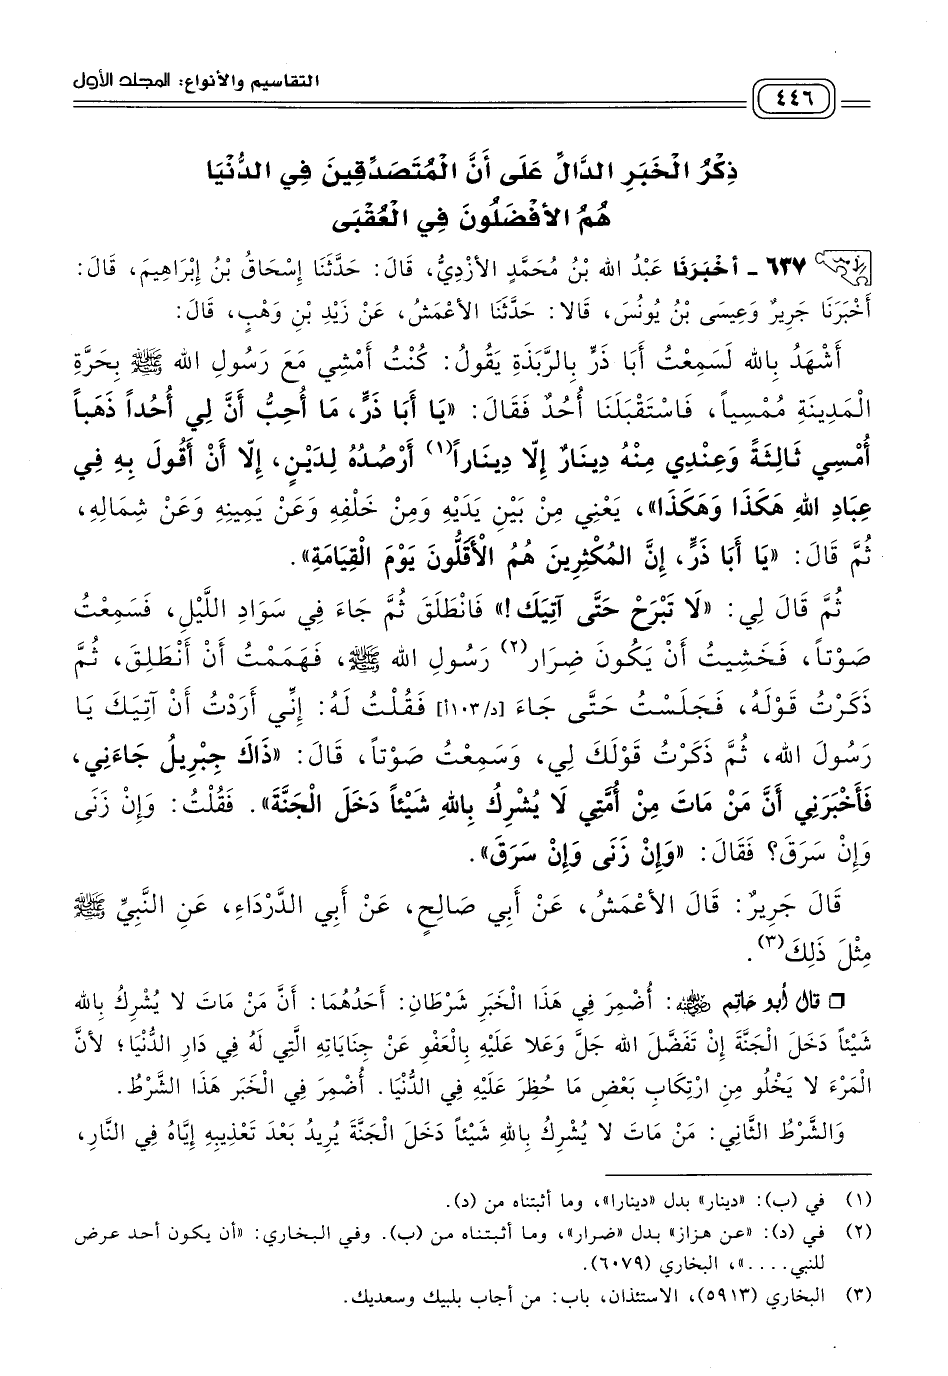 التقاسيم والأنواع: المجلد الأول
٤٤٦
ذِكْرُ الْخَبَرِ الدَّالِّ عَلَى أَنَّ الْمُتَصَدِّقِينَ فِي الدُّنْيَا
هُمُ الأَفْضَلُونَ فِي الْعُقْبَى
٦٣٧ - أَخْبَرَنَا عَبْدُ الله بْنُ مُحَمَّدٍ الأَزْدِيُّ، قَالَ: حَدَّثَنَا إِسْحَاقُ بْنُ إِبْرَاهِيمَ، قَالَ:
أَخْبَرَنَا جَرِيرٌ وَعِيسَى بْنُ يُونُسَ، قَالا: حَدَّثَنَا الأَعْمَشُ، عَنْ زَيْدِ بْنِ وَهْبٍ، قَالَ:
أَشْهَدُ بِالله لَسَمِعْتُ أَبَا ذَرٍّ بِالرَّبَذَةِ يَقُولُ: كُنْتُ أَمْشِي مَعَ رَسُولِ الله ﷺ بِحَرَّةِ
الْمَدِينَةِ مُمْسِياً، فَاسْتَقْبَلَنَا أُحُدٌ فَقَالَ: «يَا أَبَا ذَرٍّ، مَا أُحِبُّ أَنَّ لِي أُحُداً ذَهَباً
أُمْسِي ثَالِثَةً وَعِنْدِي مِنْهُ دِينَارٌ إِلّا دِينَاراً(١) أَرْصُدُهُ لِدَيْنٍ، إِلّا أَنْ أَقُولَ بِهِ فِي
عِبَادِ اللهِ هَكَذَا وَهَكَذَا»، يَعْنِي مِنْ بَيْنِ يَدَيْهِ وَمِنْ خَلْفِهِ وَعَنْ يَمِينِهِ وَعَنْ شِمَالِهِ،
ثُمَّ قَالَ: «يَا أَبَا ذَرٍّ، إِنَّ المُكْثِرِينَ هُمُ الْأَقَلُّونَ يَوْمَ الْقِيَامَةِ».
ثُمَّ قَالَ لِي: «لَا تَبْرَحْ حَتَّى آتِيَكَ!» فَانْطَلَقَ ثُمَّ جَاءَ فِي سَوَادِ اللَّيْلِ، فَسَمِعْتُ
صَوْتاً، فَخَشِيتُ أَنْ يَكُونَ ضِرَار(٢) رَسُولِ الله ﷺ، فَهَمَمْتُ أَنْ أَنْطَلِقَ، ثُمَّ
ذَكَرْتُ قَوْلَهُ، فَجَلَسْتُ حَتَّى جَاءَ [د/١٠٣أ] فَقُلْتُ لَهُ: إِنِّي أَرَدْتُ أَنْ آتِيَكَ يَا
رَسُولَ الله، ثُمَّ ذَكَرْتُ قَوْلَكَ لِي، وَسَمِعْتُ صَوْتاً، قَالَ: «ذَاكَ جِبْرِيلُ جَاءَنِي،
فَأَخْبَرَنِي أَنَّ مَنْ مَاتَ مِنْ أُمَّتِي لَا يُشْرِكُ بِاللهِ شَيْئاً دَخَلَ الْجَنَّةَ». فَقُلْتُ: وَإِنْ زَنَى
وَإِنْ سَرَقَ؟ فَقَالَ: «وَإِنْ زَنَى وَإِنْ سَرَقَ».
قَالَ جَرِيرٌ: قَالَ الأَعْمَشُ، عَنْ أَبِي صَالِحٍ، عَنْ أَبِي الدَّرْدَاءِ، عَنِ النَّبِيِّ ﷺ
مِثْلَ ذَلِكَ(٣).
❒ قال أبو حاتم رضي الله عنه: أُضْمِرَ فِي هَذَا الْخَبَرِ شَرْطَانِ: أَحَدُهُمَا: أَنَّ مَنْ مَاتَ لا يُشْرِكُ بِالله
شَيْئاً دَخَلَ الْجَنَّةَ إِنْ تَفَضَّلَ الله جَلَّ وَعَلا عَلَيْهِ بِالْعَفْوِ عَنْ جِنَايَاتِهِ الَّتِي لَهُ فِي دَارِ الدُّنْيَا؛ لأنَّ
الْمَرْءَ لا يَخْلُو مِنِ ارْتِكَابِ بَعْضِ مَا حُظِرَ عَلَيْهِ فِي الدُّنْيَا. أُضْمِرَ فِي الْخَبَرِ هَذَا الشَّرْطُ.
وَالشَّرْطُ الثَّانِي: مَنْ مَاتَ لا يُشْرِكُ بِاللهِ شَيْئاً دَخَلَ الْجَنَّةَ يُرِيدُ بَعْدَ تَعْذِيبِهِ إِيَّاهُ فِي النَّارِ،
(١) في (ب): «دينار» بدل «دينارا»، وما أثبتناه من (د).
(٢) في (د): «عن هزاز» بدل «ضرار»، وما أثبتناه من (ب). وفي البخاري: «أن يكون أحد عرض
للنبي....»، البخاري (٦٠٧٩).
(٣) البخاري (٥٩١٣)، الاستئذان، باب: من أجاب بلبيك وسعديك.